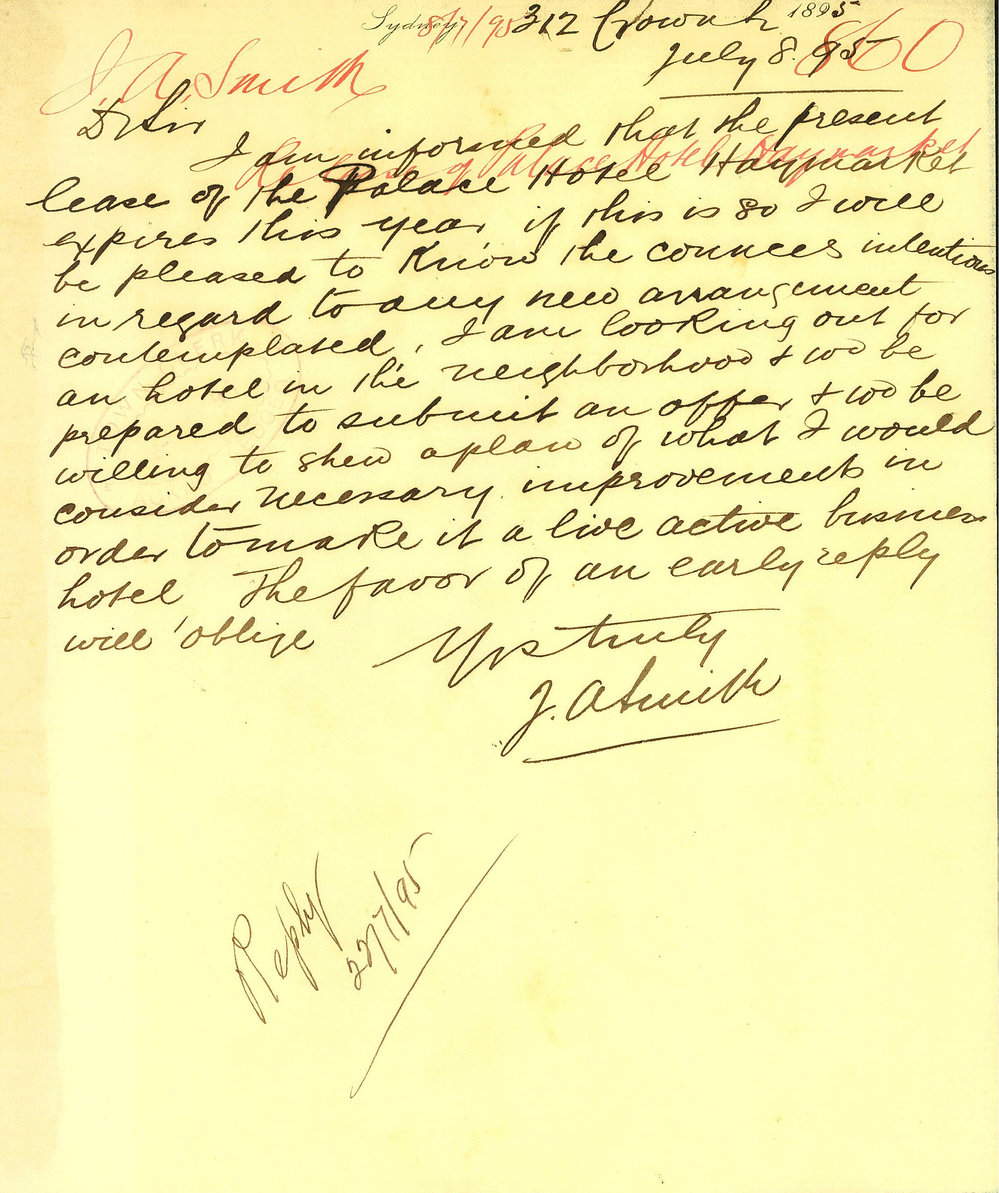 Sydney 8/7/95 312 Crown St 1895
July 8. 95 860
J. A. Smith
D Sir
I am informed that the present
Re lease of Palace Hotel Haymarket
lease of the Palace Hotel Haymarket
expires this year, if this is so I will
be pleased to know the councels intentions
in regard to any new arrangement
contemplated, I am looking out for
an hotel in the neighborhood & wd be
prepared to submit an offer & wd be
willing to shew a plan of what I would
consider necessary improvements in
order to make it a live active business
hotel The favor of an early reply
will oblige
Yrs truly
J. A Smith
Reply
22/7/95